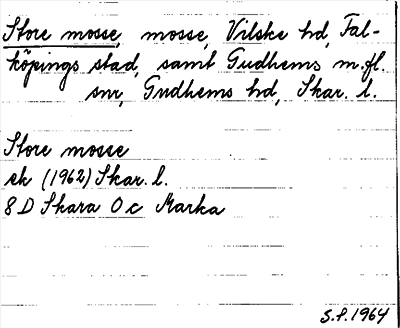 Store mosse, mosse, Vilske hd, Fal-
köpings stad, samt Gudhems m.fl.
snr, Gudhems hd, Skar. l.
Store mosse
ek (1962) Skar. l.
8 D Skara 0 c Marka
S.f. 1964